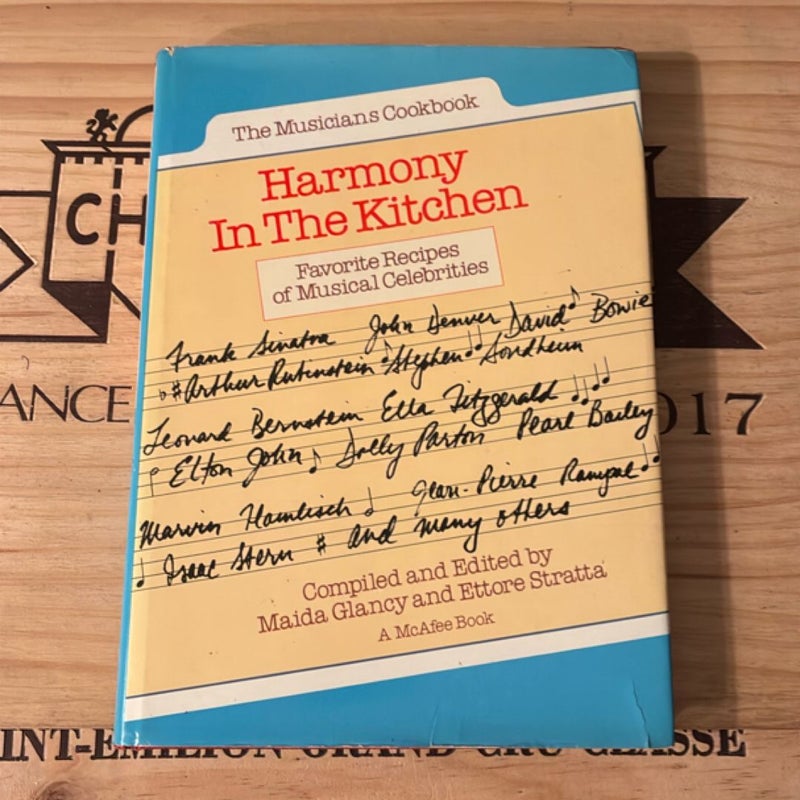 The Musicians Cookbook
Harmony
In The Kitchen
Favorite Recipes
of Musical Celebrities
Frank Sinatra John Denver David Bowie
Arthur Rubinstein Stephen Sondheim
Leonard Bernstein Ella Fitzgerald
Elton John Dolly Parton Pearl Bailey
Marvin Hamlisch Jean-Pierre Rampal
Isaac Stern and many others
Compiled and Edited by
Maida Glancy and Ettore Stratta
A McAfee Book
CH
ANCE
017
INT-EMILION GRAND CRU CLASSE